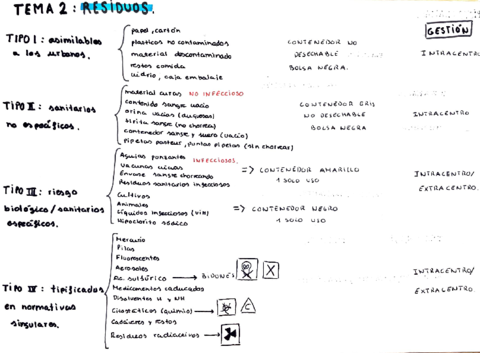 TEMA 2: RESIDUOS.
GESTIÓN
TIPO I: asimilables a los urbanos.
papel, cartón
plásticos no contaminados
material descontaminado
restos comida
vidrio, caja embalaje
CONTENEDOR NO
DESECHABLE
BOLSA NEGRA.
INTRACENTRO
TIPO II: sanitarios no específicos.
material curas NO INFECCIOSO
contenido sangre vacío
orina vacíos (diuresas)
tirita sangre (no chorrea)
contenedor sangre y suero (vacío)
pipetas pasteur, puntas pipetas (sin chorrear)
CONTENEDOR GRIS
NO DESECHABLE
BOLSA NEGRA
INTRACENTRO
TIPO III: riesgo biológico/sanitarios específicos.
Agujas punzante INFECCIOSOS.
Vacunas vivas
Envase sangre chorreando
Residuos sanitarios infecciosos
=> CONTENEDOR AMARILLO
1 SOLO USO
Cultivos
Animales
Líquidos infecciosos (VIH)
Hipoclorito sódico
=> CONTENEDOR NEGRO
1 SOLO USO
INTRACENTRO/
EXTRACENTRO.
TIPO IV: tipificados en normativas singulares.
Mercurio
Pilas
Fluorescentes
Aerosoles
Ac. sulfúrico → BIDONES
X
Medicamentos caducados
Disolventes H y NH
Citostáticos (quimio) →
C
Cadáveres y restos
Residuos radiactivos →
INTRACENTRO/
EXTRACENTRO